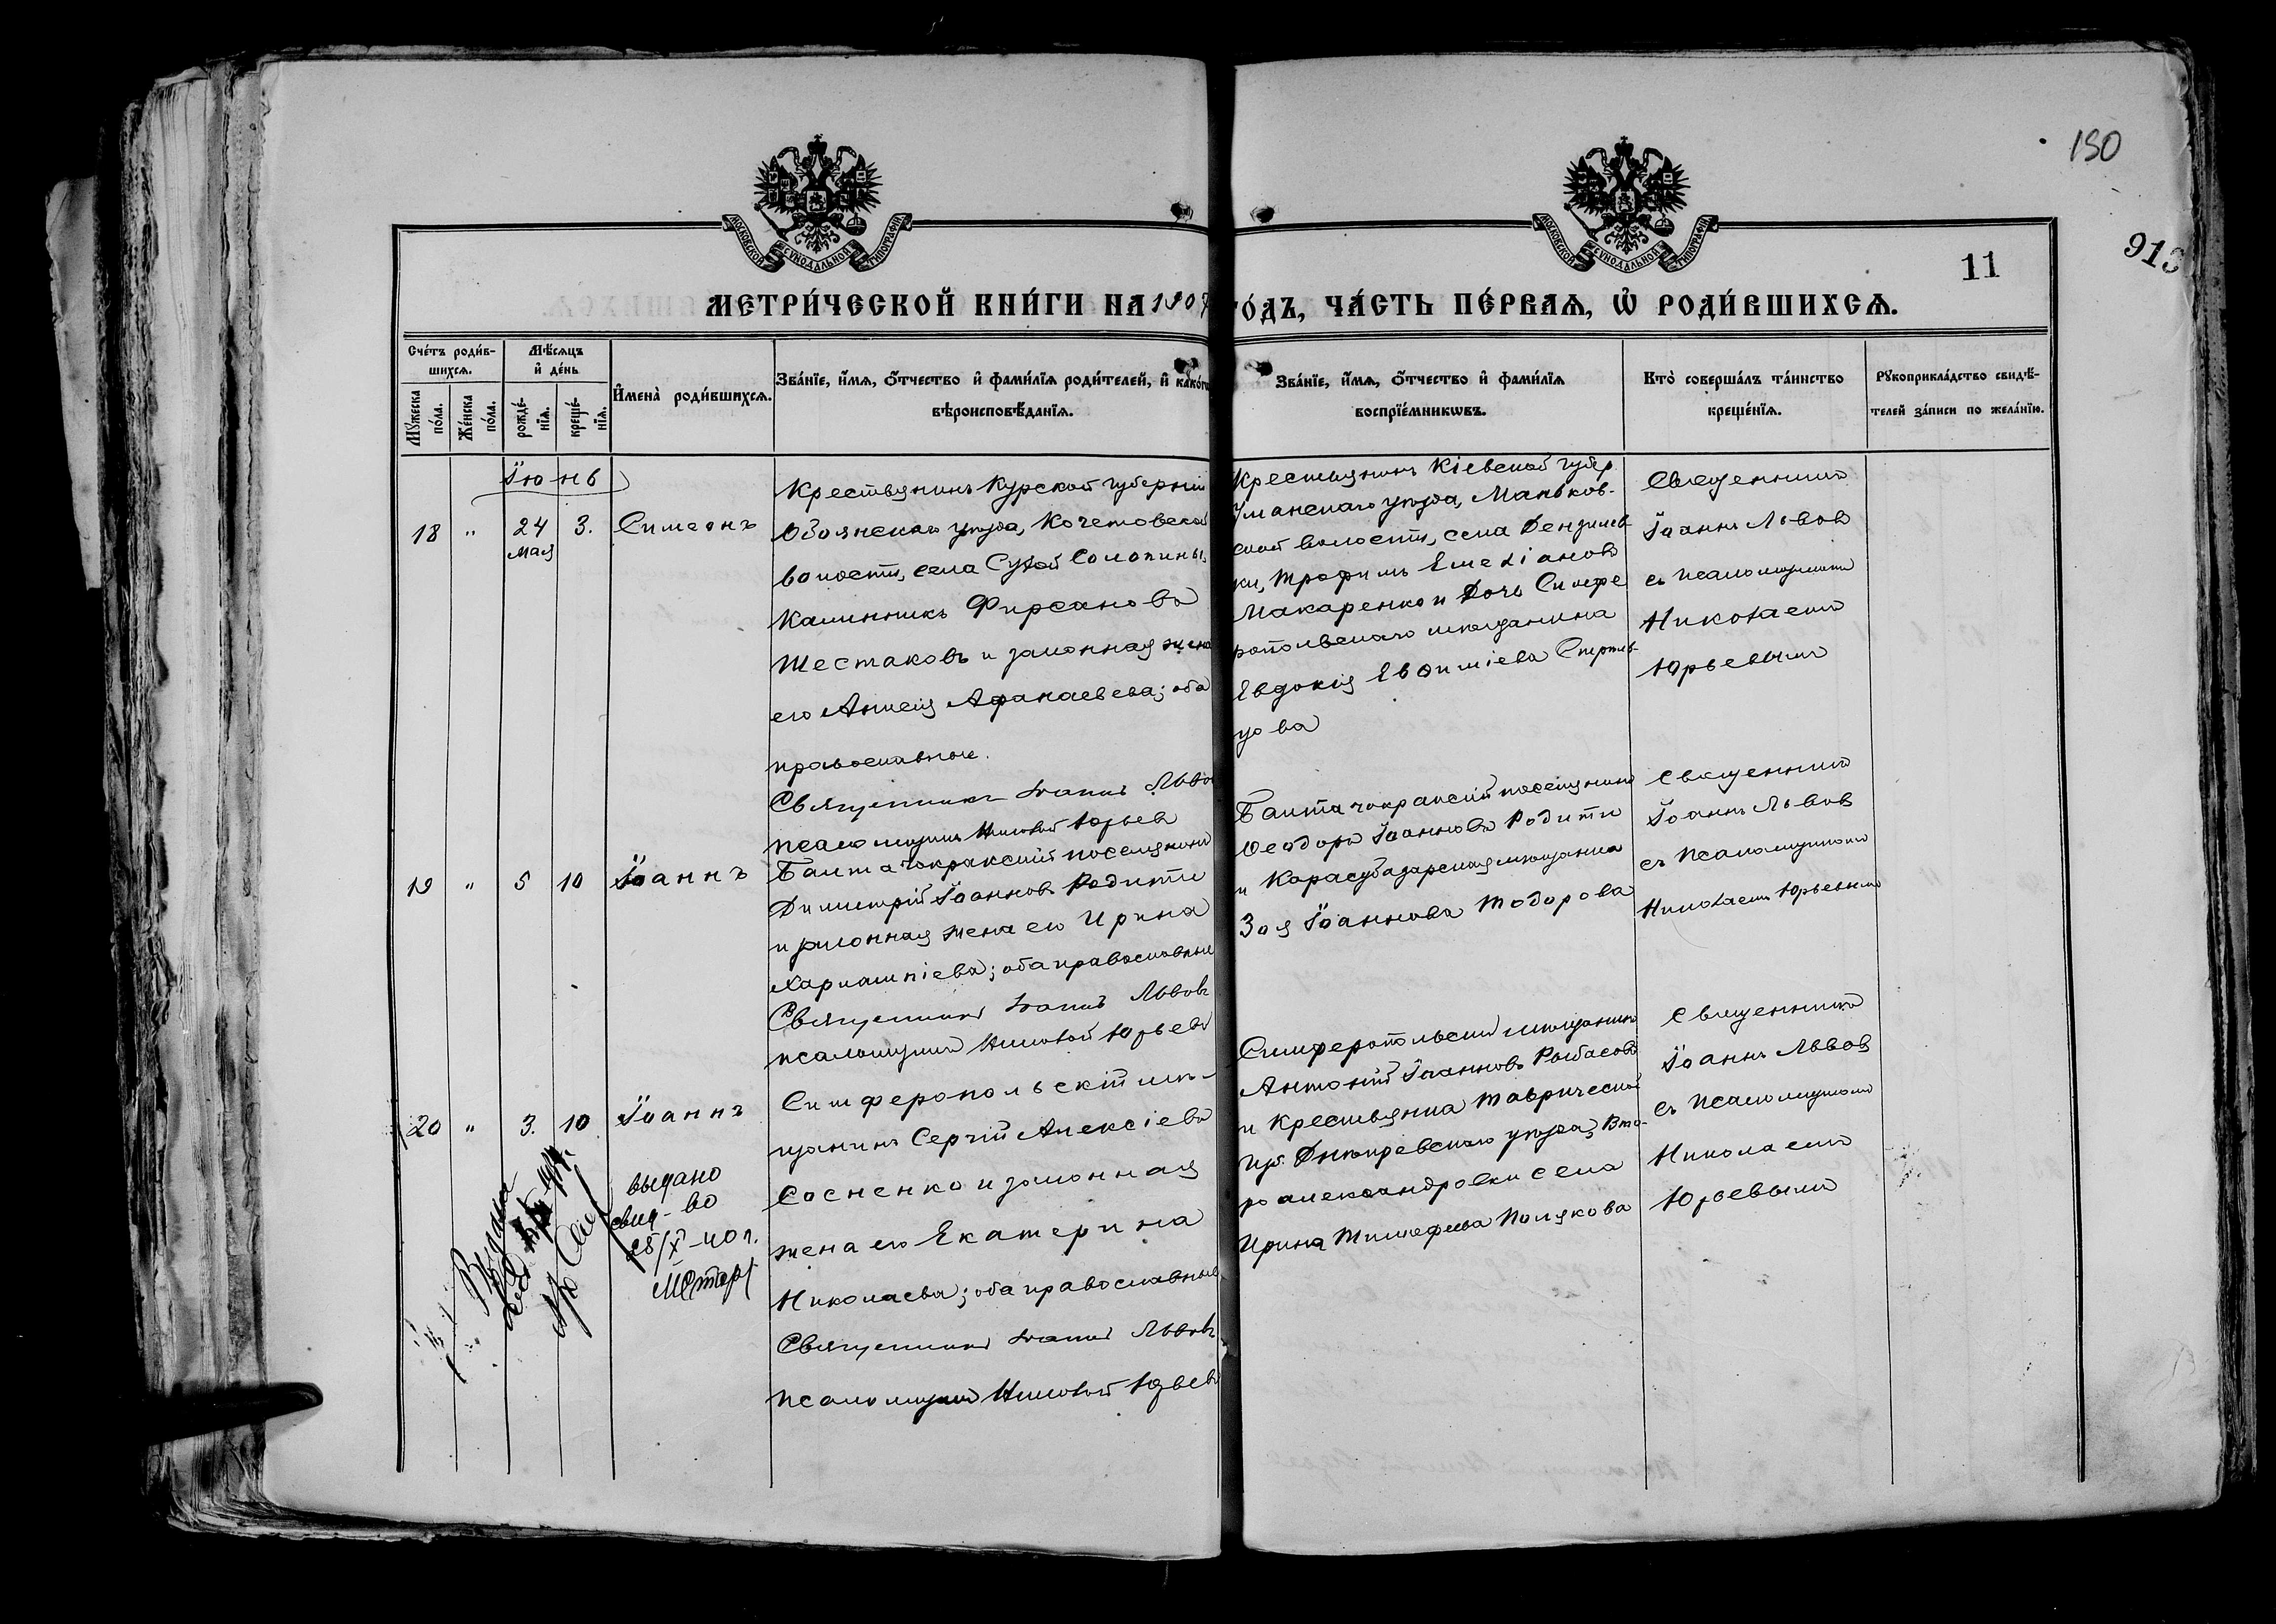 150
913
11
МОСКОВСКОЙ СУНОДАЛЬНОЙ ТИПОГРАФІИ
МОСКОВСКОЙ СУНОДАЛЬНОЙ ТИПОГРАФІИ
МЕТРИ́ЧЕСКОЙ КНИ́ГИ НА 1907 ГО́ДЪ, ЧА́СТЬ ПЕ́РВАѦ, Ѡ҆ РОДИ́ВШИХСѦ.
Сче́тъ роди́в-
шихсѧ.
Мꙋжеска по́ла.
Же́нска по́ла.
Мѣ́сѧцъ
и҆ де́нь
рожде́-
нїѧ.
креще́-
нїѧ.
И҆мена̀ роди́вшихсѧ.
Зва́нїе, и҆́мѧ, ѻ҆́тчество и҆ фами́лїѧ роди́телей, и҆ како́гѡ
вѣроисповѣ́данїѧ.
Зва́нїе, и҆́мѧ, ѻ҆́тчество и҆ фами́лїѧ
воспрїе́мникѡвъ.
Кто̀ соверша́лъ та́инство
креще́нїѧ.
Рꙋкоприкла́дство свидѣ́-
телей за́писи по жела́нїю.
Іюнь
18 " 24 мая 3. Симеонъ
Крестьянинъ Курской губерніи
Обоянскаго уѣзда, Кочетовской
волости, села Сухой Солотины,
Калинникъ Фирсановъ
Шестаковъ и законная жена
его Анисія Афанасьева; оба
православные.
Священникъ Іоаннъ Львовъ
псаломщикъ Николай Юрьевъ
Крестьянинъ Кіевской губер.
Уманскаго уѣзда, Маньков-
ской волости, села Дензилев-
ки, Трофимъ Емеліановъ
Макаренко и Дочь Симфе
ропольскаго мѣщанина
Евдокія Евѳиміева
цова
Священникъ
Іоаннъ Львовъ
съ псаломщикомъ
Николаемъ
Юрьевымъ
19 " 5 10 Іоаннъ
Балта Чокракскій поселянинъ
Димитрій Іоанновъ Родити
и законная жена его Ирина
Харлампіева; оба православные
Священникъ Іоаннъ Львовъ
псаломщикъ Николай Юрьевъ
Балта чокракскій поселянинъ
Ѳеодоръ Іоанновъ Родити
и Карасубазарская мѣщанка
Зоя Іоаннова Тодорова
Священникъ
Іоаннъ Львовъ
съ псаломщикомъ
Николаемъ Юрьевымъ
20 " 3. 10 Іоаннъ
Симферопольскій мѣ-
щанинъ Сергій Алексіевъ
Сосненко и законная
жена его Екатерина
Николаева; оба православные
Священникъ Іоаннъ Львовъ
псаломщикъ Николай Юрьевъ
Симферопольскій мѣщанинъ
Антоній Іоанновъ Рыбасовъ
и крестьянка Таврической
губ. Днѣпровскаго уѣзда, Вто-
ро александровки села
Ирина Тимофеева Полякова
Священникъ
Іоаннъ Львовъ
съ псаломщикомъ
Николаемъ
Юрьевымъ
выдано
свид-во
25/X-40 г.
Выдана